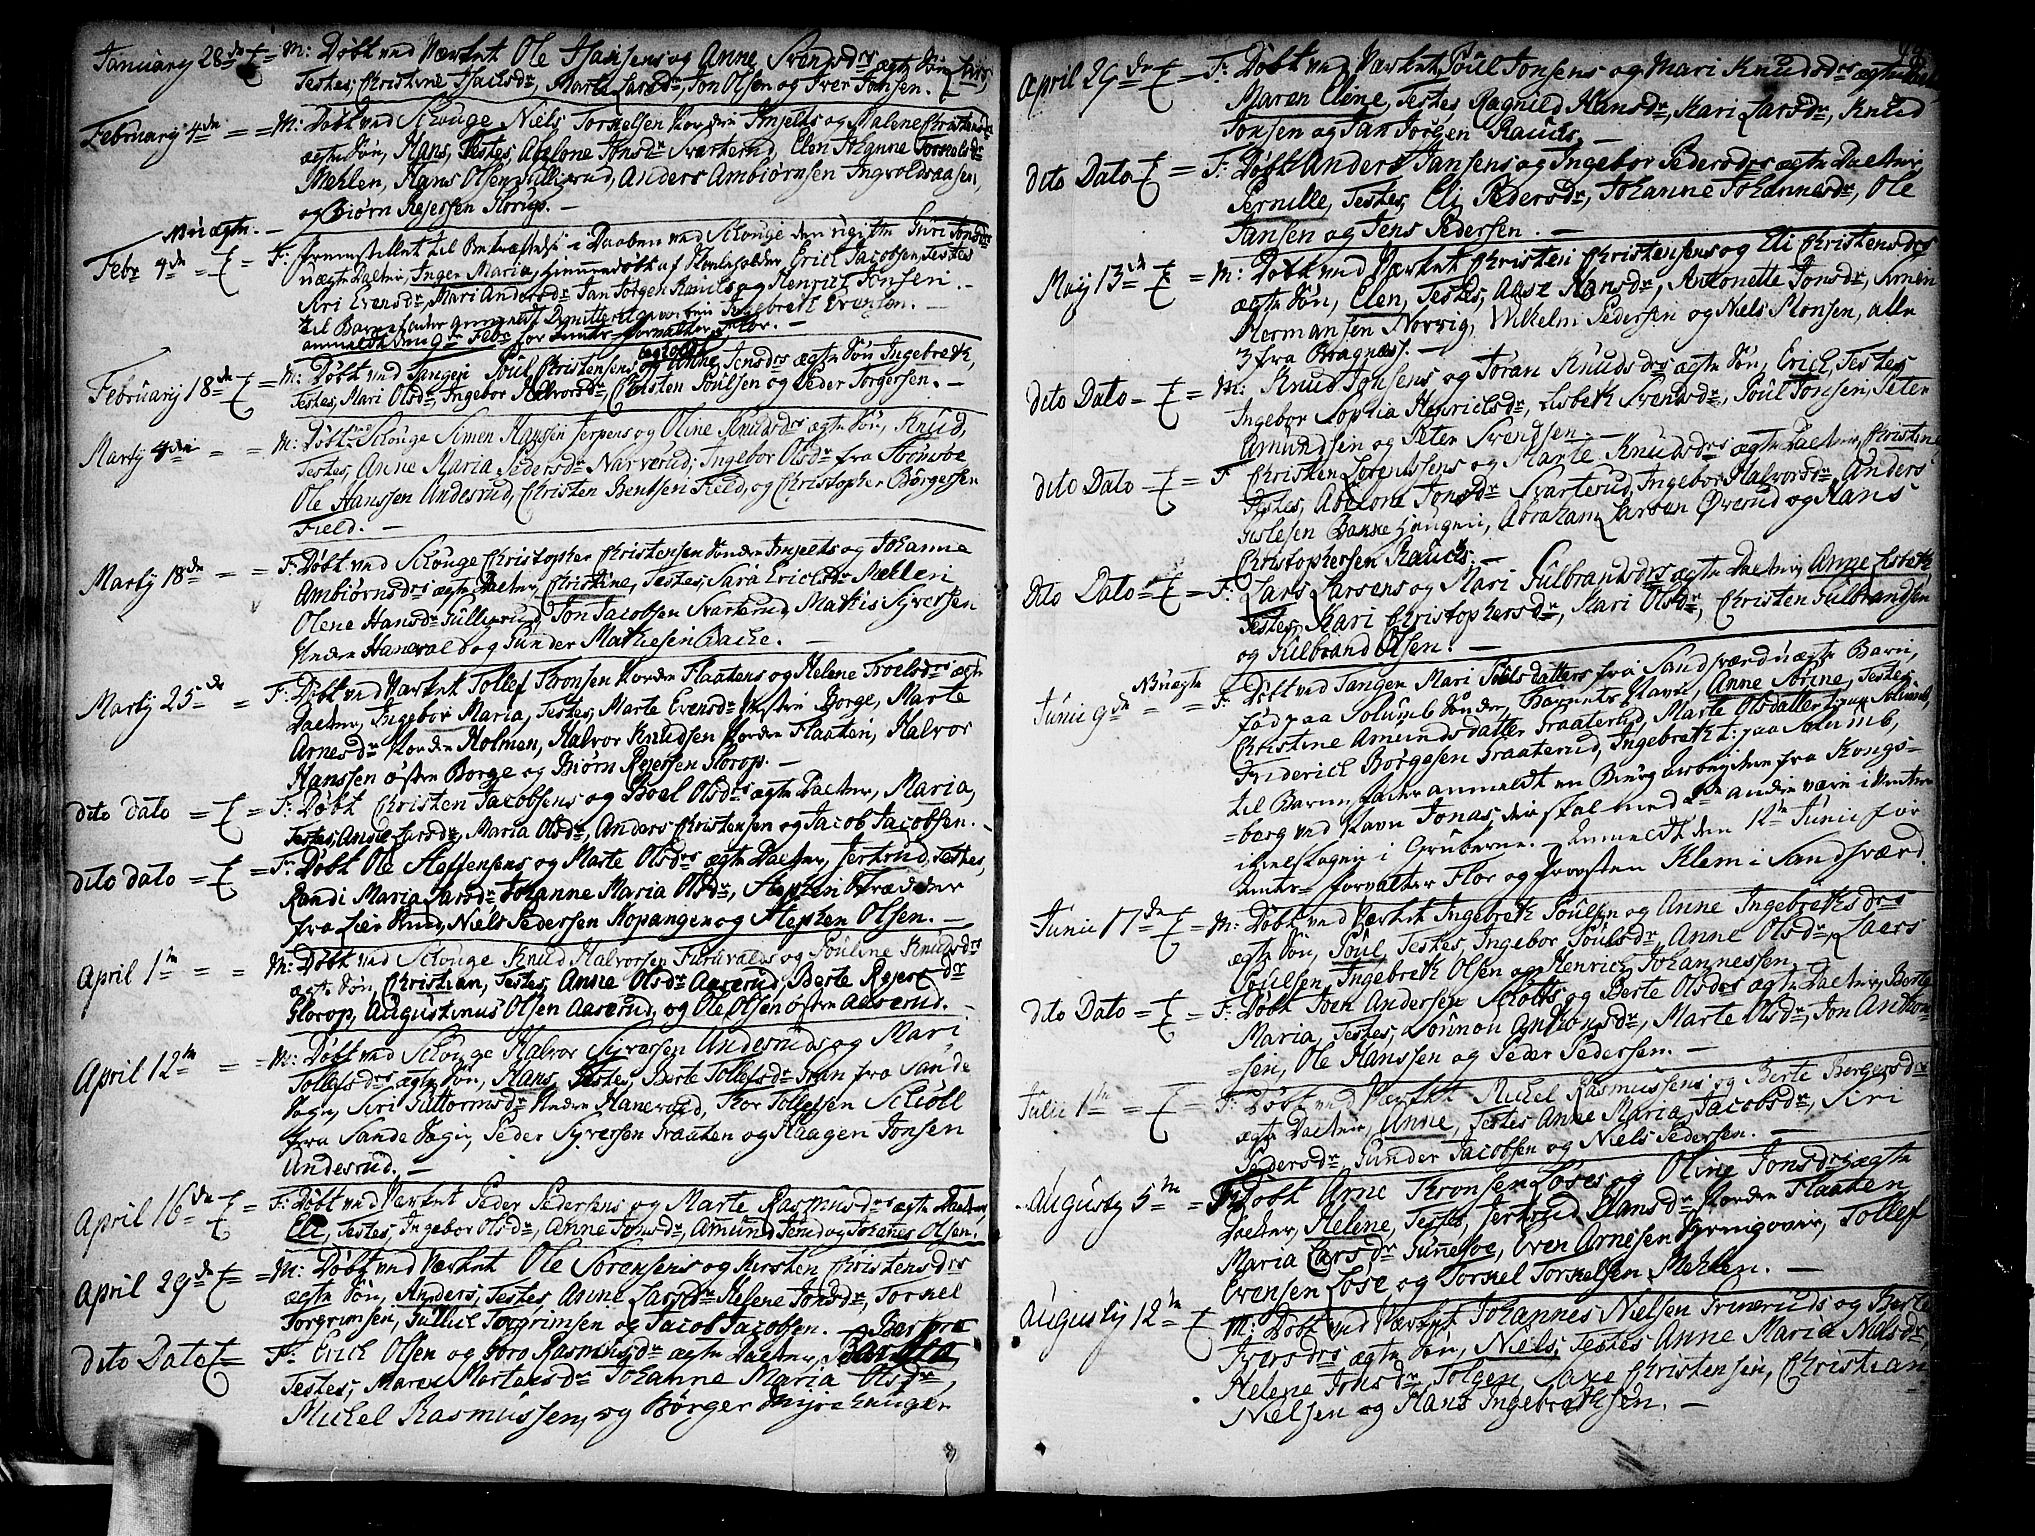 January 28de = M: Døbt ved Værket Ole Hansens og Anne Svensdrs ægte Søn
Testes, Christine Jacilsdr, Marte Larsdr, Jon Olsen og Iver Jonsen.
February 4de = = M: Døbt ved Schouge Niels Tornelsen Nordre og Malene
ægte Søn, Hans, Testes, Abelone Jonsdr Svarterud, Elen Johanne Tornelsdr
Mehlen, Hans Olsen Gullierud, Anders Ambiørnsen Ingvoldsaasen,
og Biørn Rejersen Horup. –
N: uægte. –
Febr 4de = F: Fremstillet til Bekræftelse i Daaben ved Schouge den ugifte Guri Jonsdrs
uægte Datter, Inger Maria, hiemmedøbt af Erich Jacobsen, Testes
Siri Evensdr, Mari Andersdr Jan Jørgen Rauchs og Henrich Jonsen. –
til Barnefader Ingebreth Evensen. –
anmeldt den 9de Febr for Amts-forvalter Flor. –
February 18de = M: Døbt ved Tangen Poul Christensens og Anne Jensdrs ægte Søn Ingebreth,
Testes, Mari Olsdr, Ingebor Halvorsdr, Christen Poulsen og Peder Torgersen. –
Marty 4de = = M: Døbt ved Schouge Simen Hanssen Jerpens og Oline Knudsdrs ægte Søn, Knud,
Testes, Anne Maria Pedersdr Narverud, Ingebor Olsdr fra Strømsøe
Ole Hanssen Anderud, Christen Bentsen Field, og Christopher Børgersen
Field. –
Marty 18de = = F: Døbt ved Schouge Christopher Christensen Søndre og Johanne
Ambiørnsdrs ægte Datter, Christine, Testes, Sara Erichsdr Møllen
Olene Hansdr Gullierud, Jon Jacobsen Svarterud, Mathis Syversen
Nedre Hanevold og Gunder Mathesen Bache. –
Marty 25de = F: Døbt ved Værket Tollef Tronsen Nordre Flaatens og Helene Troelsdrs ægte
Datter, Ingebor Maria, Testes, Marte Evensdr Østre Borge, Marte
Arnesdr Nordre Holmen, Halvor Knudsen Nordre Flaaten, Halvor
Hanssen østre Borge og Biørn Rejersen Horop. –
dito dato = = F: Døbt Christen Jacobsens og Boel Olsdrs ægte Datter, Maria,
Testes, Anne Larsdr, Maria Olsdr, Anders Christensen og Jacob Jacobsen. –
dito dato = = F: Døbt Ole Steffensens og Marte Olsdrs ægte Datter, Jertrud, Testes,
Randi Maria Larsdr, Johanne Maria Olsdr, Stephen
fra Lier, Niels Pedersen Kopangen og Stephen Olsen. –
April 1te = = M: Døbt ved Schouge Knud Halvorsen Furuvalds og Pouline Knudsdrs
ægte Søn, Christian, Testes, Anne Olsdr Aaserud, Berte Rejersdr
Horop, Augustinus Olsen Aaserud, og Ole Olsen østre Aaserud. –
April 12te = = M: Døbt ved Schouge Halvor Syversen Anderuds og Mari
Tollefsdrs ægte Søn, Hans, Testes, Berte Tollefsdr Gran fra Sande
Sogn, Siri Guttormsdr Nedre Hanevold, Thor Tollefsen Schiøll
fra Sande Sogn, Peder Syversen Graaten og Haagen Jonsen
Andesrud. –
April 16de = F: Døbt ved Værket Peder Pedersens og Marte Rasmusdrs ægte Datter,
Eli, Testes, Ingebor Olsdr, Anne Jonsdr, Amund og Johannes Olsen.
April 29de = M: Døbt ved Værket Ole Sørensens og Kirsten Christensdrs
ægte Søn, Anders, Testes, Anne Larsdr, Helene Jonsdr, Tornel
Torgrimsen, Gullich Torgrimsen og Jacob Jacobsen. –
dito Dato = F: Erich Olsen og Goro Rasmusdr ægte Datter, Barbra
Testes, Maren Mortensdr Johanne Maria Olsdr,
Michel Rasmussen, og Børger
April 29de = F: Døbt ved Værket, Poul Jonsens og Mari Knudsdrs ægte
Maren Eline, Testes Ragnild Hansdr, Kari Larsdr, Knud
Jonsen og Jan Jørgen Rauchs. –
dito Dato = F: Døbt Anders Jansens og Ingebor Pedersdrs ægte Datter
Pernille, Testes, Eli Pedersdr, Johanne Johannesdr, Ole
Jansen og Jens Pedersen. –
May 13de = M: Døbt ved Værket Christen Christensens og Eli Christensdrs
ægte Søn, Elen, Testes, Aase Hansdr, Antonette Jonsdr, Simen
Hermansen Norvig, Wilhelm Pedersen og Niels Monsen, alle
3 fra Bragnæss. –
dito Dato = M: Knud Jonsens og Joran Knudsdrs ægte Søn, Erich, Testes,
Ingebor Sophia Henrichsdr, Lisbeth Svensdr, Poul Jonsen, Peter
Amundsen og Peter Svendsen. –
dito Dato = F Christen Lorentsens og Marte Knudsdrs ægte Datter, Christine,
Testes, Abelone Jonsdr Svarterud, Ingebor Halvorsdr, Anders
Gislesen Bakke Haugen, Abraham Larsen Øverud og Hans
Christophersen Rauchs. –
Dito Dato = F: Lars Larsens og Mari Gulbrandsdrs ægte Datter, Anne Lisbeth
Testes, Kari Christophersdr, Mari Olsdr, Christen Gulbrandsen
og Gulbrand Olsen. –
N: uægte
Junii 9de = F: Døbt ved Tangen Mari Poulsdatters fra Sandsværd uægte Barn,
fød paa Solumb Søndre, Barnets Navn, Anne Sørine, Testes,
Christine Amundsdatter Graaterud, Marte Olsdatter paa Solumb,
Friderich Børgesen Graaterud, Ingebreth paa Solumb,
til Barnefader anmeldt en Berg arbeyder fra Kongs-
=berg ved Navn Jonas, der skal med andre være
ihielslagen i Gruberne. – anmeldt den 12te Junii for
Amts-forvalter Flor og Provsten Klem i Sandsværd.
Junii 17de = M: Døbt ved Værket Ingebreth Poulsen og Anne Ingebrethsdrs
ægte Søn, Poul, Testes, Ingebor Poulsdr, Anne Olsdr, Laers
Poulsen, Ingebreth Olsen og Henrich Johannessen.
dito Dato = F: Døbt Joen Andersen Schotts og Berte Olsdrs ægte Datter, Berte
Maria, Testes, Anthonsdr, Marte Olsdr, Jon Anthon-
=sen, Ole Hanssen og Peder Pedersen. –
Julii 1te = = F: Døbt ved Værket Michel Rasmussens og Berte Bergersdrs
ægte Datter, Anne, Testes Anne Maria Jacobsdr, Siri
Pedersdr, Gunder Jacobsen og Niels Pedersen. –
Augusty 5te = Døbt Arne Tronsen Løses og Oline Jonsdrs ægte
Datter, Helene, Testes, Jertrud Hansdr Nordre Flaaten
Maria Larsdr, Even Arnesen, Tollef
Evensen Løse og Tornel Tornelsen Mehlen. –
Augusty 12te = M: Døbt ved Værket Johannes Nielsen og Berte
Iversdrs ægte Søn, Niels, Testes Anne Maria Nielsdr,
Helene Jonsdr, Saxe Christensen, Christian
Nielsen og Hans Ingebrethsen. –